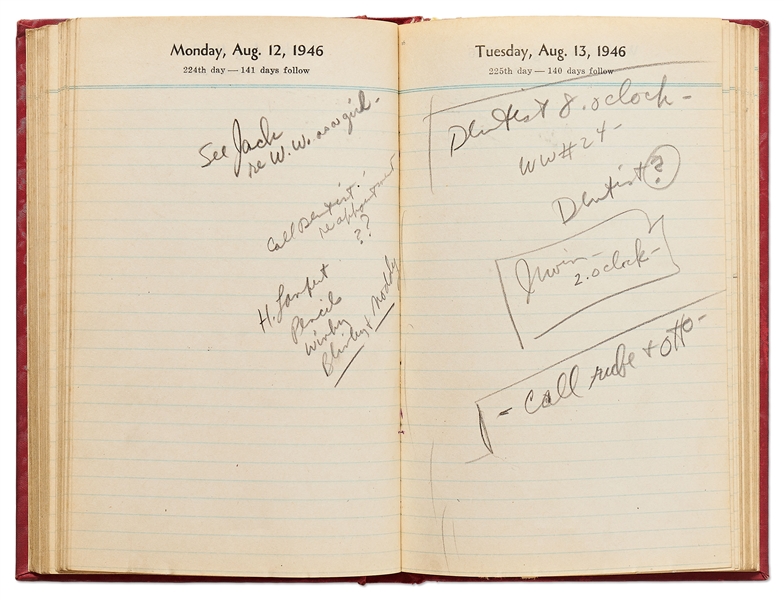 Monday, Aug. 12, 1946
224th day — 141 days follow
See Jack
re W.W. as cowgirl -
Call dentist -
re appointment
??
H. Lampert
Pencils
Winky
Blinky & Noddy
Tuesday, Aug. 13, 1946
225th day — 140 days follow
Dentist 8. oclock -
WW #24 -
Dentist ?
Irwin -
2. oclock -
- Call rube + otto -